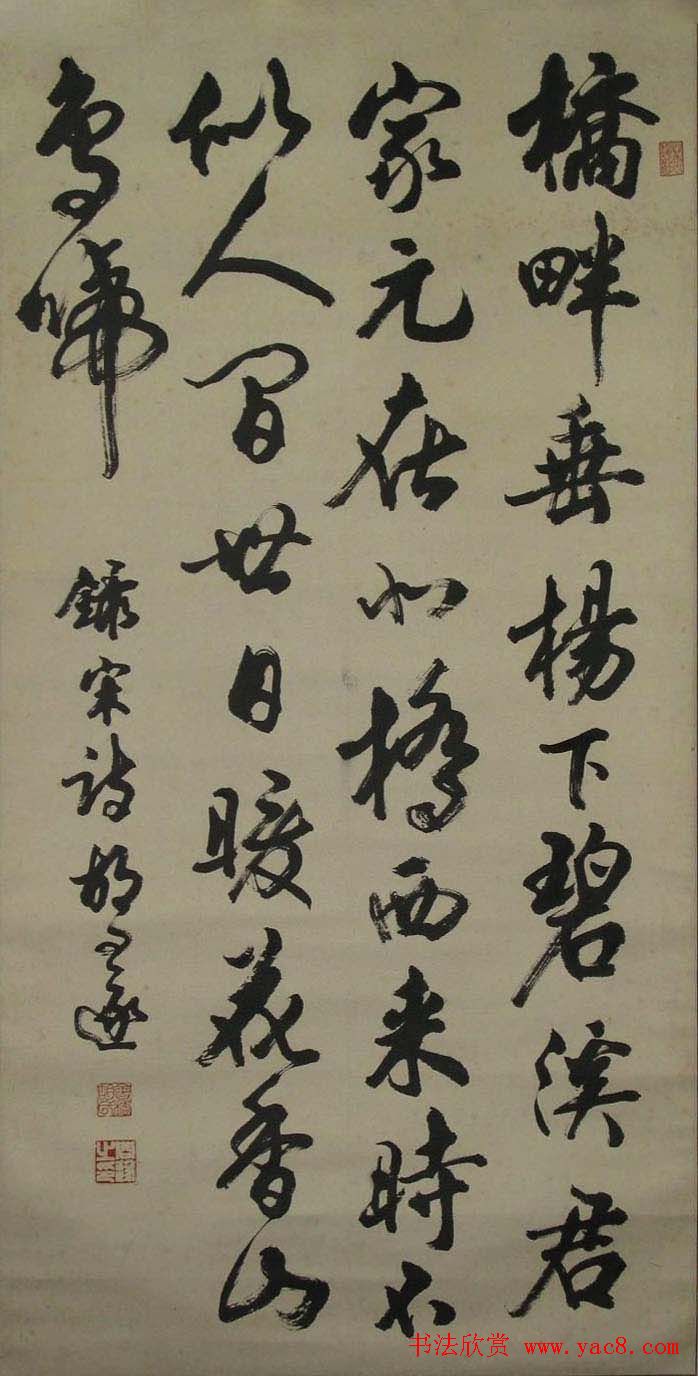 橋畔垂楊下碧溪君
家元在北橋西来時不
似人間世日暖花香山
鳥啼
錄宋詩胡公遂
书法欣赏 www.yac8.com